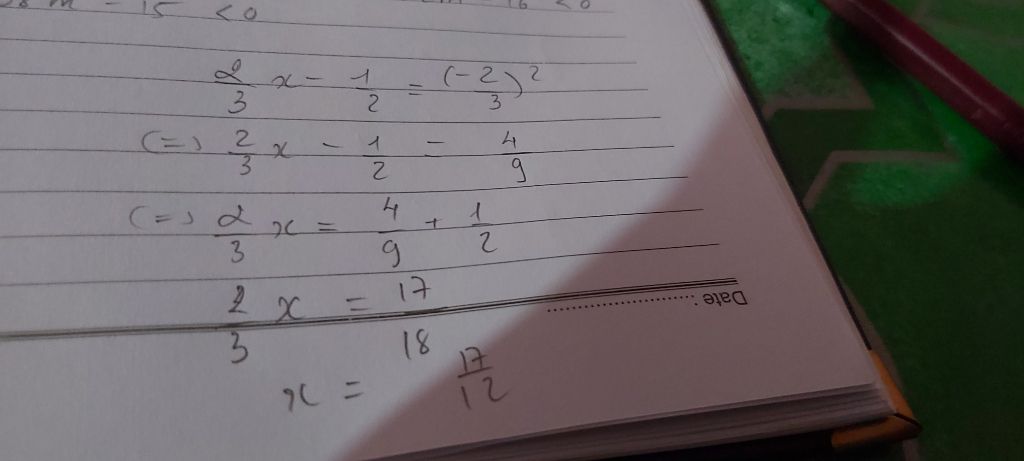 m - 15 < 0
2/3 x - 1/2 = (-2/3)²
(=) 2/3 x - 1/2 = 4/9
(=) 2/3 x = 4/9 + 1/2
2/3 x = 17/18
x = 17/12
Date : ........................